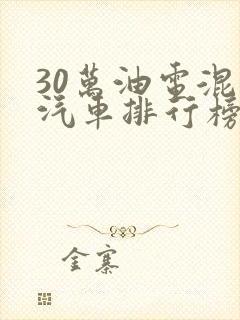 30萬油電混
汽車排行榜
金寨